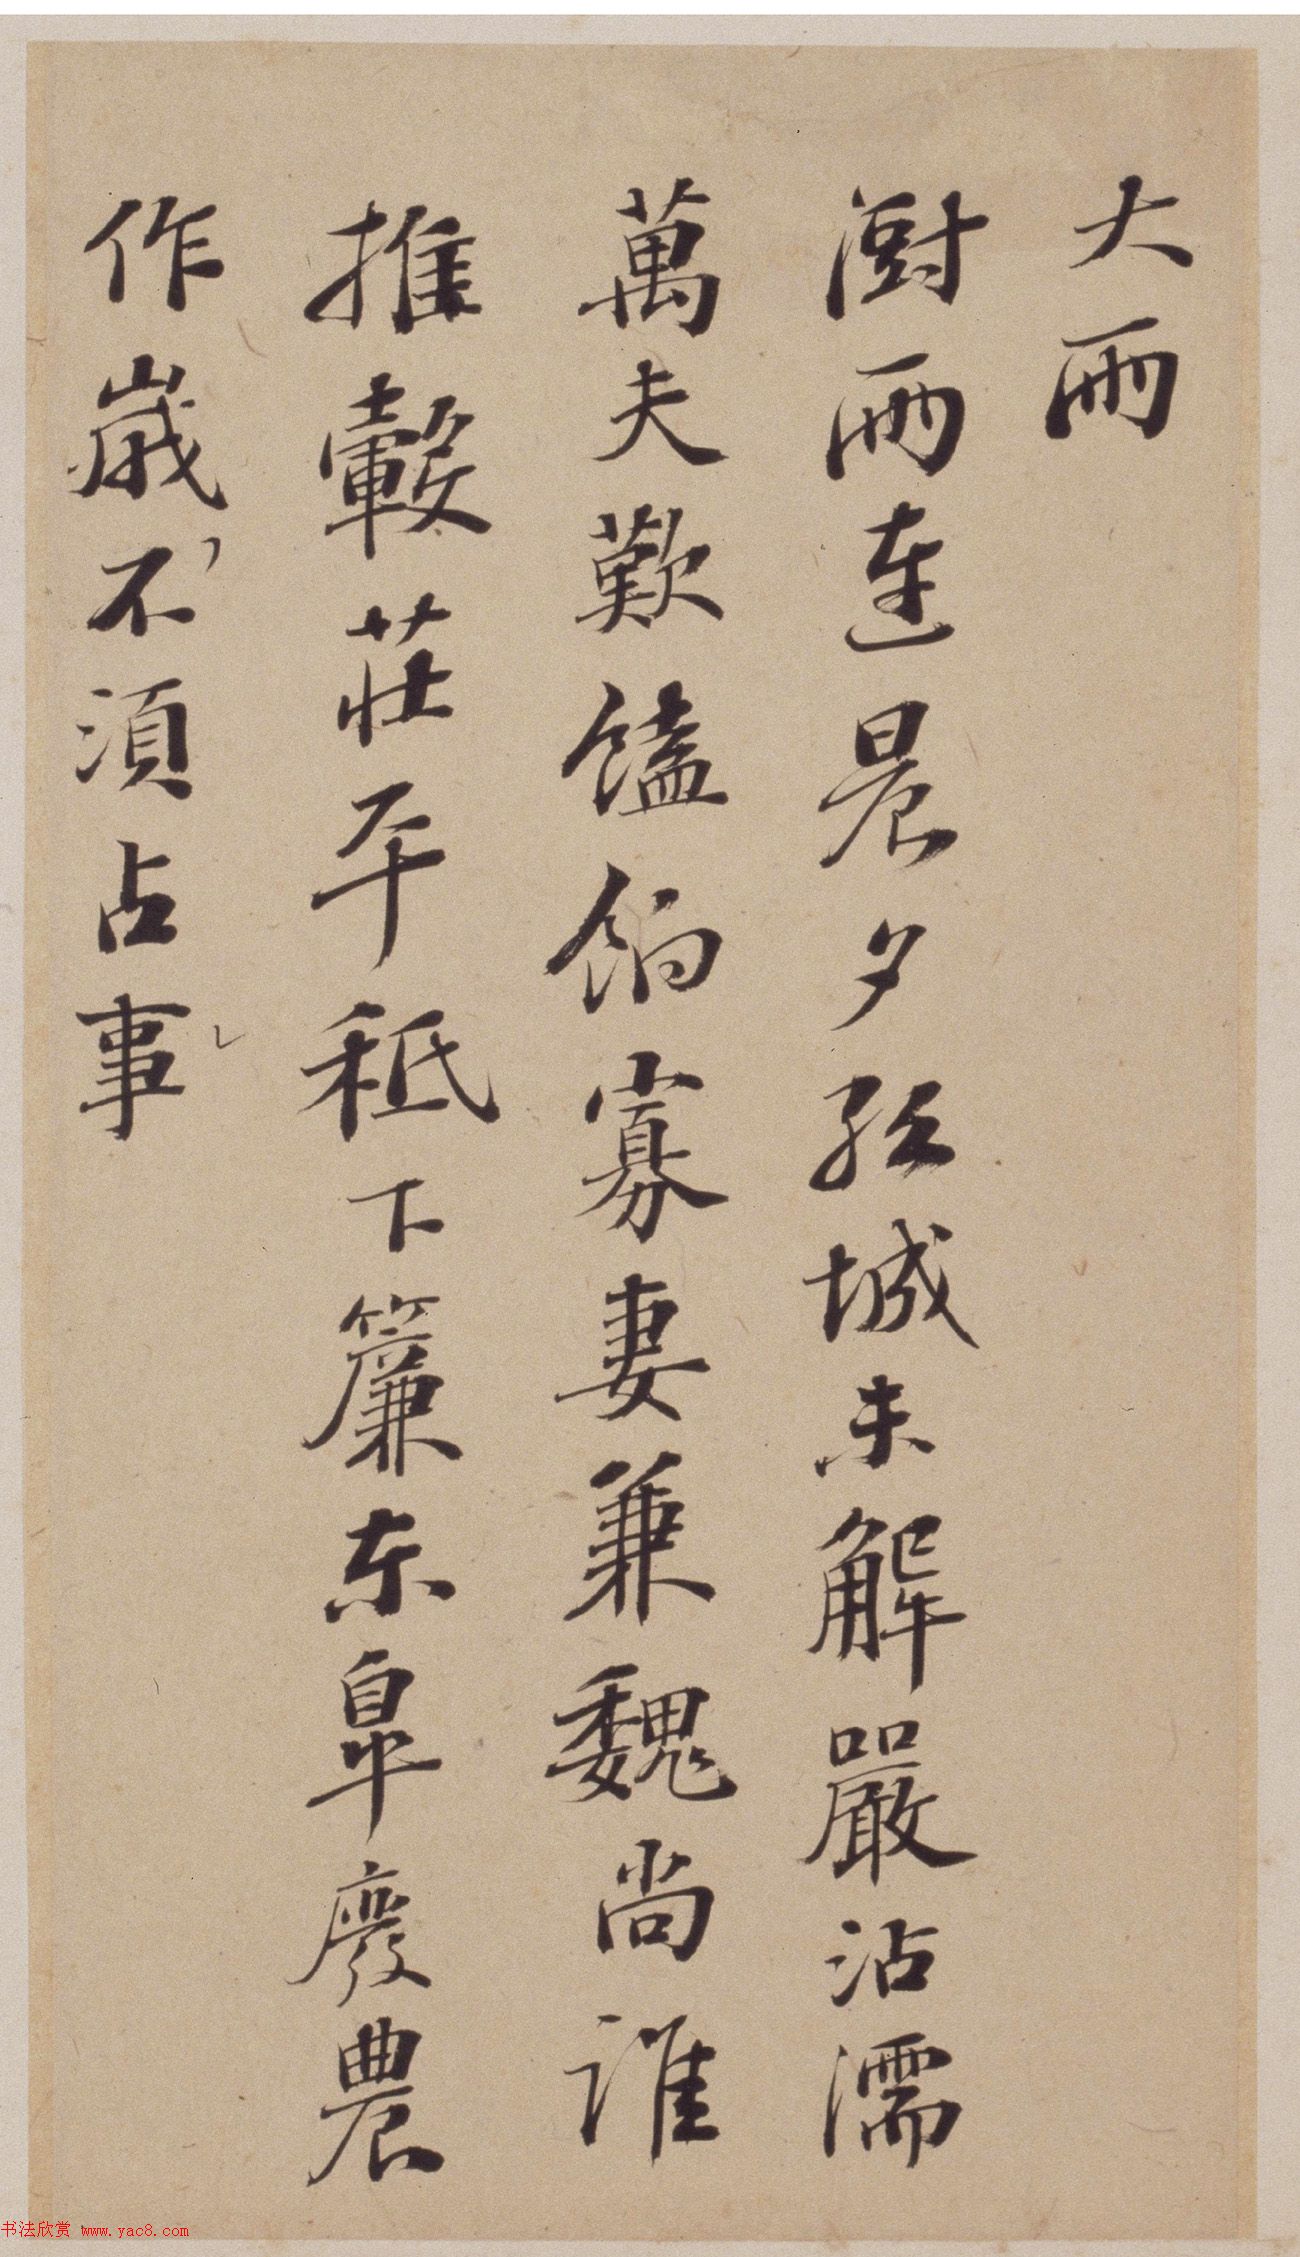 大雨
澍雨連晨夕孤城未解嚴沾濡
萬夫歎饁餉寡妻兼魏尚誰
推轂莊平秪下簾東皐廢農
作歲不須占事
书法欣赏 www.yac8.com